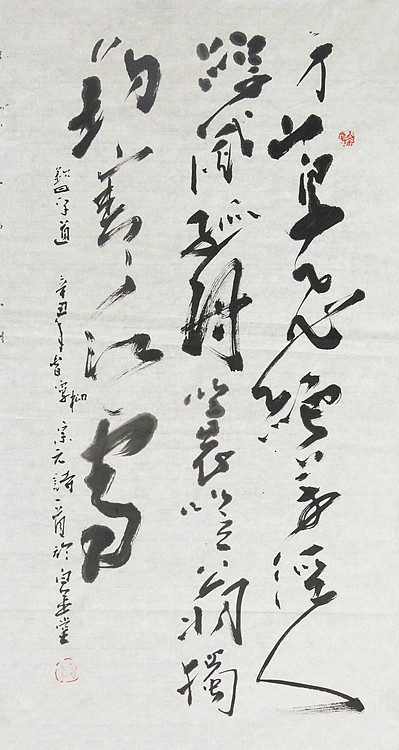 千山鳥飛絕萬徑人
蹤滅孤舟蓑笠翁獨
釣寒江雪
辛丑年柳宗元詩一首於白堂